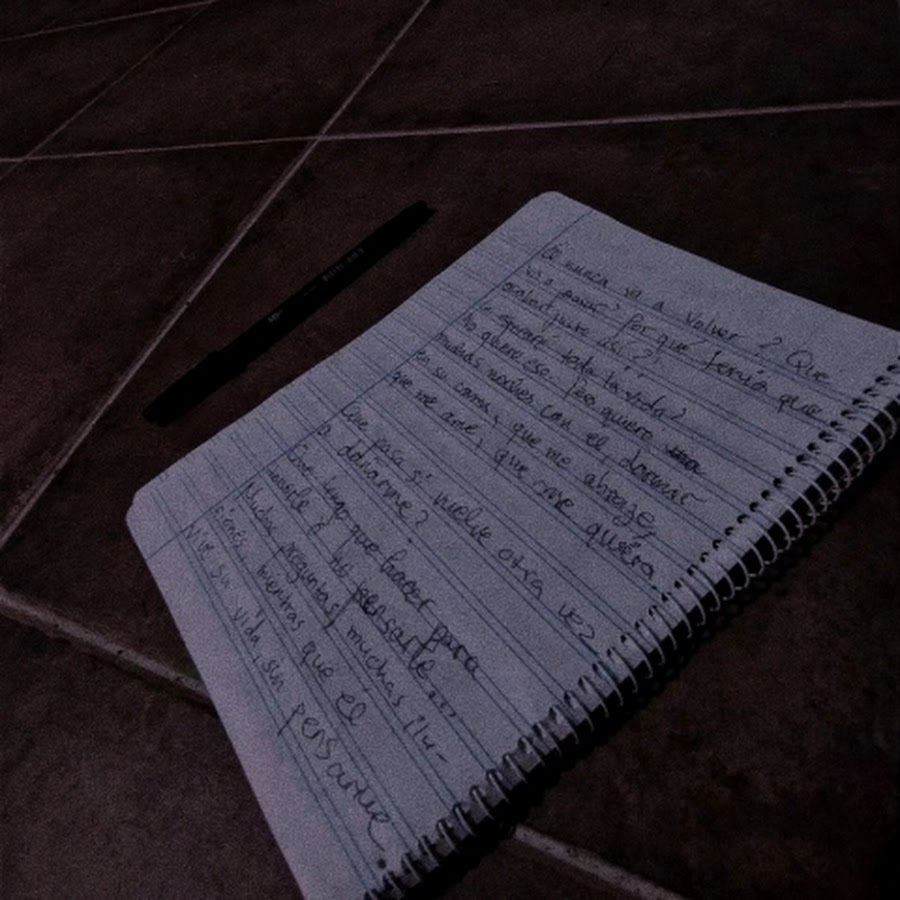 nunca va a volver? Que
va a pasar? Por qué tenía que
justo
esperaré toda la vida?
No quiero eso. Pero quiero
muchas noches con el, dormir
en su cama, que me abraze,
que me ame, que me quiera.
Que pasa si vuelve otra vez
a dañarme?
Que tengo que hacer para
y no pensarle...
Muchas preguntas, muchas ilu-
siones mientras que el
vive su vida sin pensarme.